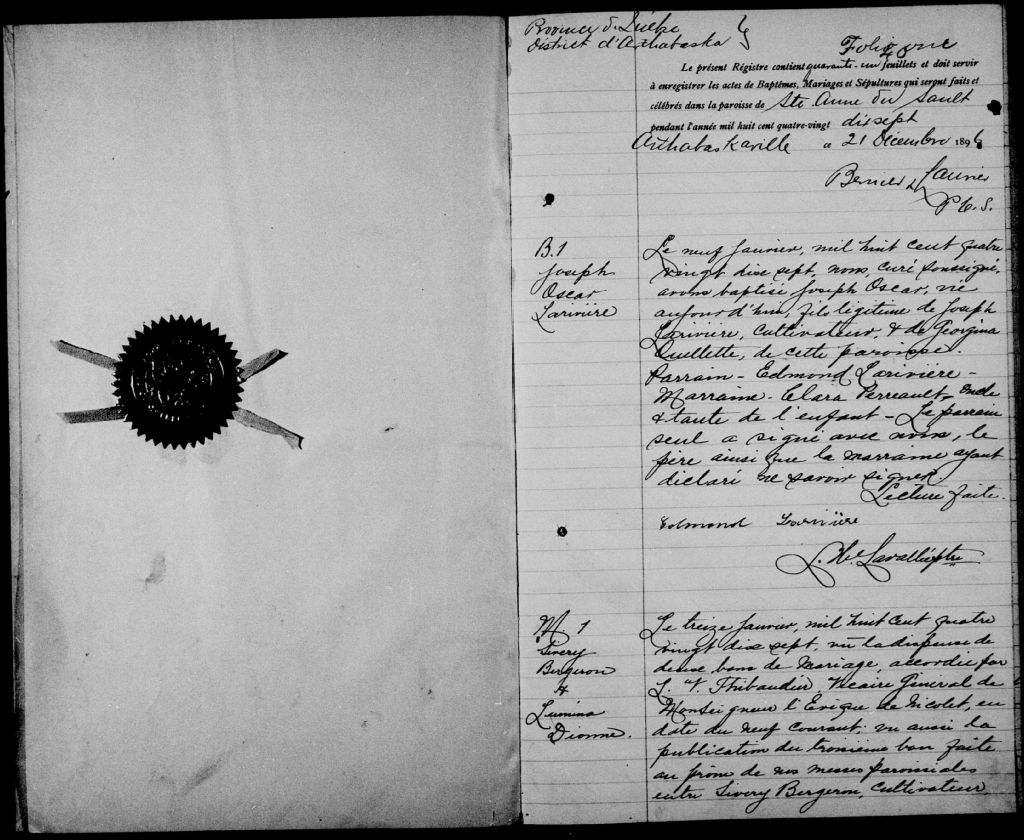 Province de Québec
District d'Arthabaska
Folio one
Le présent Régistre contient quarante-un feuillets et doit servir
à enregistrer les actes de Baptêmes, Mariages et Sépultures qui seront faits et
célébrés dans la paroisse de Ste Anne du Sault
pendant l'année mil huit cent quatre-vingt dixsept
Arthabaskaville ce 21 Décembre 1896
P.C.S.
B.1
Joseph
Oscar
Larivière
Le neuf Janvier, mil huit cent quatre
vingt dix sept, nous, curé soussigné,
avons baptisé Joseph Oscar, né
aujourd'hui, fils légitime de Joseph
Larivière, cultivateur, & de Georgina
Ouellette, de cette paroisse.
Parrain - Edmond Larivière -
Marraine - Clara Perreault, oncle
& tante de l'enfant - Le parrain
seul a signé avec nous, le
père ainsi que la marraine ayant
déclaré ne savoir signer.
Lecture faite.
Edmond Larivière
L. H. Lavallée ptre
M. 1
Sivery
Bergeron
&
Lumina
Dionne.
Le treize Janvier, mil huit cent quatre
vingt dix sept, vu la dispense de
deux bans de Mariage, accordée par
Vicaire Général de
Monseigneur l'Evêque de Nicolet, en
date du neuf courant; vu aussi la
publication du troisième ban faite
au prône de nos messes paroissiales
entre Sivery Bergeron, cultivateur,